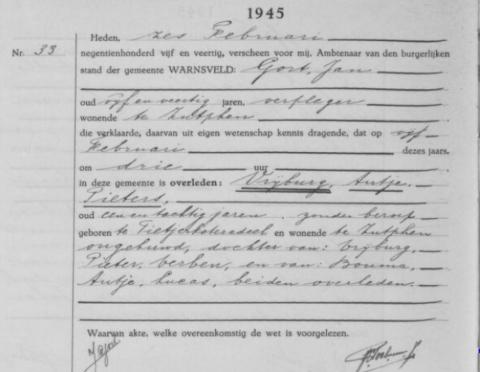 1945
Heden, zes Februari
Nr. 33 negentienhonderd vijf en veertig, verscheen voor mij, Ambtenaar van den burgerlijken
stand der gemeente WARNSVELD: Gort, Jan
oud vijf en veertig jaren, verpleger
wonende te Zutphen
die verklaarde, daarvan uit eigen wetenschap kennis dragende, dat op vijf
Februari dezes jaars,
om drie uur
in deze gemeente is overleden: Vrijburg, Antje
Pieters.
oud een en tachtig jaren, zonder beroep
geboren te Tietjerksteradeel en wonende te Zutphen
ongehuwd, dochter van: Vrijburg,
Pieter, Berben, en van: Bouma,
Antje, Lucas, beiden overleden.
Waarvan akte, welke overeenkomstig de wet is voorgelezen.
JGort